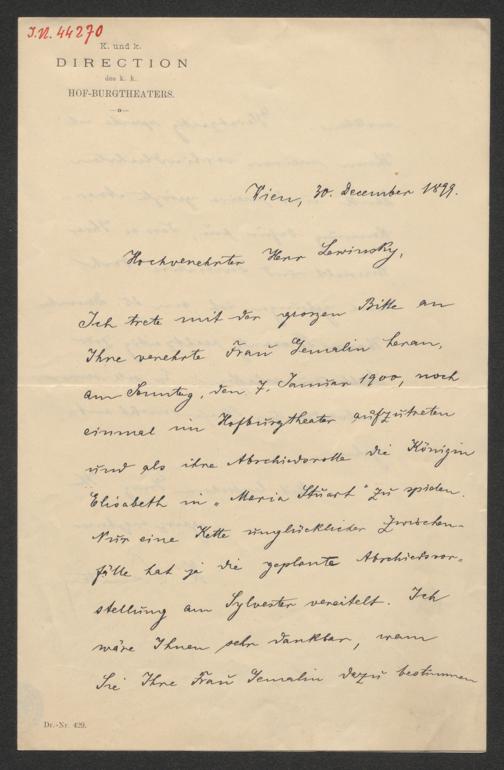 I.N. 44270
K. und k.
DIRECTION
des k. k.
HOF-BURGTHEATERS.
Wien, 30. December 1899.
Hochverehrter Herr Lewinsky,
Ich trete mit der groszen Bitte an
Ihre verehrte Frau Gemalin heran,
am Sonntag, den 7. Januar 1900, noch
einmal im Hofburgtheater aufzutreten
und als ihre Abschiedsrolle die Königin
Elisabeth in „Maria Stuart" zu spielen.
Nur eine Kette unglücklicher Zwischen-
fälle hat ja die geplante Abschiedsvor-
stellung am Sylvester vereitelt. Ich
wäre Ihnen sehr dankbar, wenn
Sie Ihre Frau Gemalin dazu bestimmen
Dr.-Nr. 429.